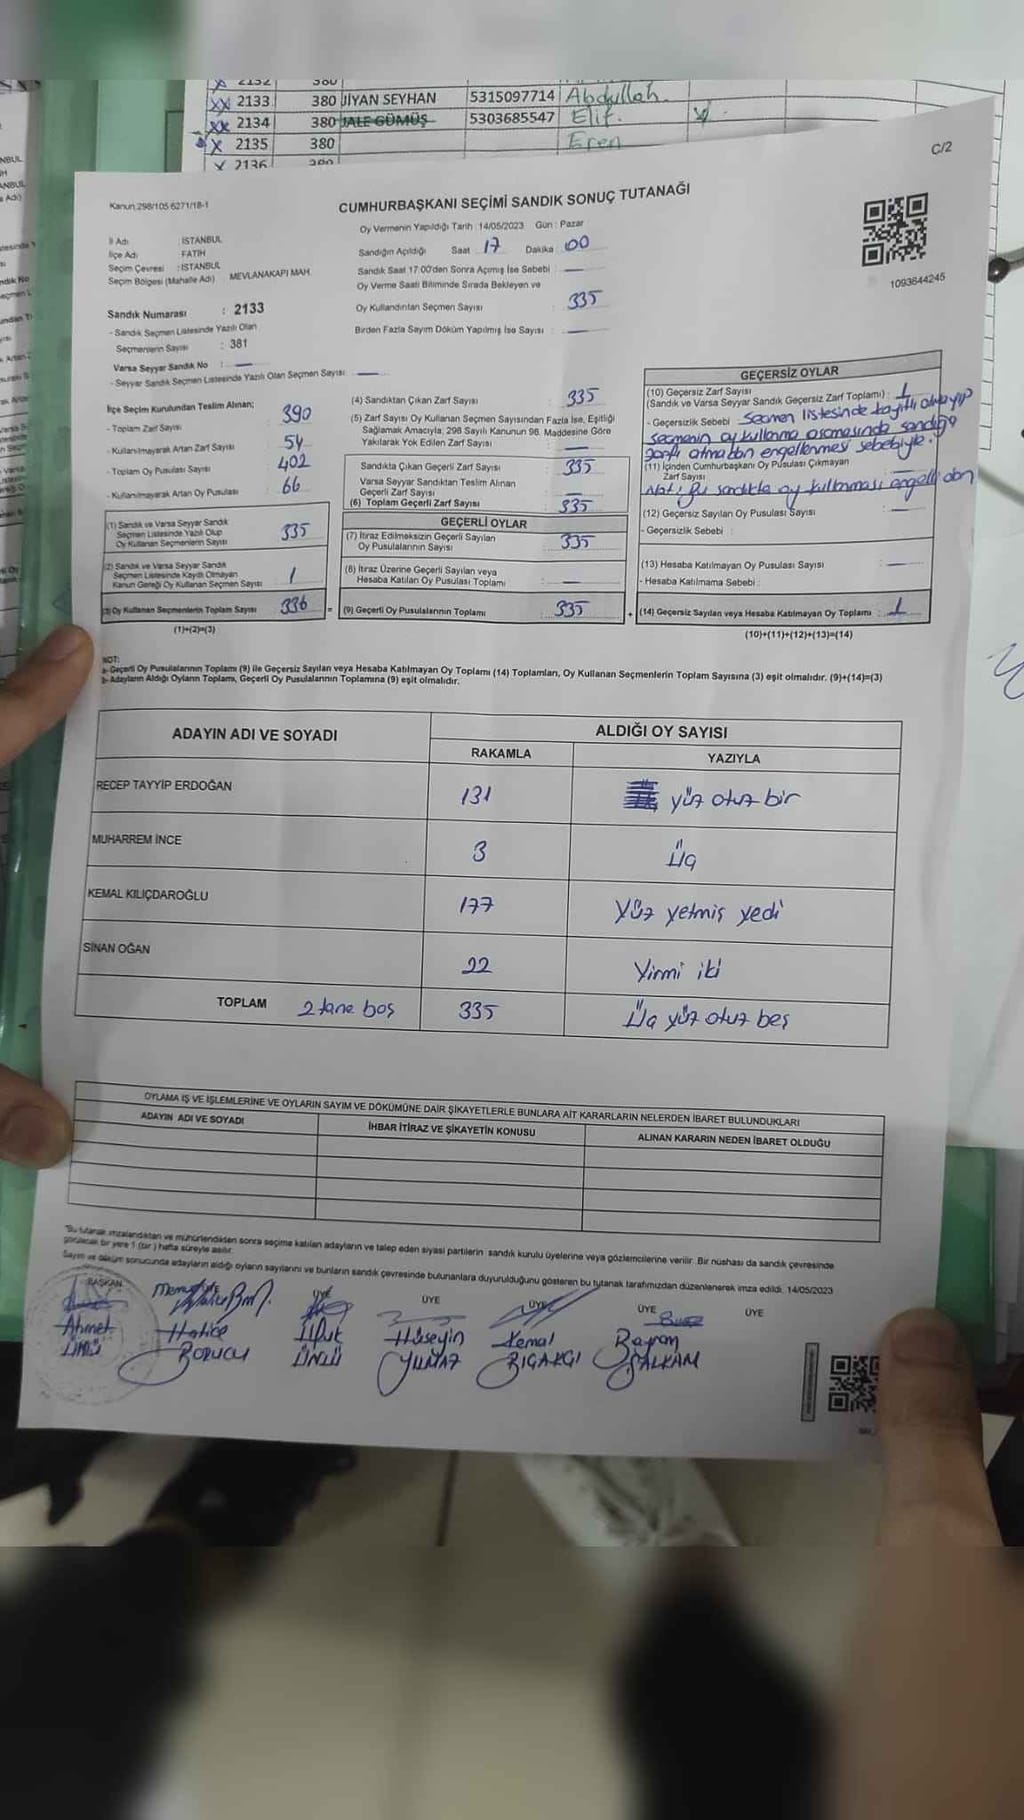 2132 380
XX 2133 380 JİYAN SEYHAN 5315097714 Abdullah
XX 2134 380 JALE GÜMÜŞ 5303685547 Elif.
X 2135 380 Eren
2136 380
C/2
Kanun:298/105 6271/18-1
CUMHURBAŞKANI SEÇİMİ SANDIK SONUÇ TUTANAĞI
Oy Vermenin Yapıldığı Tarih : 14/05/2023 Gün : Pazar
İl Adı : İSTANBUL
İlçe Adı : FATİH
Seçim Çevresi : İSTANBUL
Seçim Bölgesi (Mahalle Adı) MEVLANAKAPI MAH.
Sandığın Açıldığı Saat 17 Dakika : 00
Sandık Saat 17.00'den Sonra Açımış İse Sebebi : —
Oy Verme Saati Bitiminde Sırada Bekleyen ve
Oy Kullandırılan Seçmen Sayısı : 335
Birden Fazla Sayım Döküm Yapılmış İse Sayısı : —
1093644245
Sandık Numarası : 2133
- Sandık Seçmen Listesinde Yazılı Olan
Seçmenlerin Sayısı : 381
Varsa Seyyar Sandık No : —
- Seyyar Sandık Seçmen Listesinde Yazılı Olan Seçmen Sayısı : —
İlçe Seçim Kurulundan Teslim Alınan;
- Toplam Zarf Sayısı : 390
- Kullanılmayarak Artan Zarf Sayısı : 54
- Toplam Oy Pusulası Sayısı : 402
- Kullanılmayarak Artan Oy Pusulası : 66
(1) Sandık ve Varsa Seyyar Sandık
Seçmen Listesinde Yazılı Olup
Oy Kullanan Seçmenlerin Sayısı : 335
(2) Sandık ve Varsa Seyyar Sandık
Seçmen Listesinde Kayıtlı Olmayan
Kanun Gereği Oy Kullanan Seçmen Sayısı : 1
(3) Oy Kullanan Seçmenlerin Toplam Sayısı : 336 =
(1)+(2)=(3)
(4) Sandıktan Çıkan Zarf Sayısı : 335
(5) Zarf Sayısı Oy Kullanan Seçmen Sayısından Fazla İse, Eşitliği
Sağlamak Amacıyla, 298 Sayılı Kanunun 98. Maddesine Göre
Yakılarak Yok Edilen Zarf Sayısı : —
Sandıkta Çıkan Geçerli Zarf Sayısı : 335
Varsa Seyyar Sandıktan Teslim Alınan
Geçerli Zarf Sayısı : —
(6) Toplam Geçerli Zarf Sayısı : 335
GEÇERLİ OYLAR
(7) İtiraz Edilmeksizin Geçerli Sayılan
Oy Pusulalarının Sayısı : 335
(8) İtiraz Üzerine Geçerli Sayılan veya
Hesaba Katılan Oy Pusulası Toplamı : —
(9) Geçerli Oy Pusulalarının Toplamı : 335 +
GEÇERSİZ OYLAR
(10) Geçersiz Zarf Sayısı
(Sandık ve Varsa Seyyar Sandık Geçersiz Zarf Toplamı) : 1
- Geçersizlik Sebebi : Seçmen listesinde kayıtlı olmayıp
seçmenin oy kullanma aşamasında sandığa
zarfı atmadan engellenmesi sebebiyle.
(11) İçinden Cumhurbaşkanı Oy Pusulası Çıkmayan
Zarf Sayısı : —
Not: Bu sandıkta oy kullanması
(12) Geçersiz Sayılan Oy Pusulası Sayısı : —
- Geçersizlik Sebebi :
(13) Hesaba Katılmayan Oy Pusulası Sayısı : —
- Hesaba Katılmama Sebebi :
(14) Geçersiz Sayılan veya Hesaba Katılmayan Oy Toplamı : 1
(10)+(11)+(12)+(13)=(14)
NOT:
a- Geçerli Oy Pusulalarının Toplamı (9) ile Geçersiz Sayılan veya Hesaba Katılmayan Oy Toplamı (14) Toplamları, Oy Kullanan Seçmenlerin Toplam Sayısına (3) eşit olmalıdır. (9)+(14)=(3)
b- Adayların Aldığı Oyların Toplamı, Geçerli Oy Pusulalarının Toplamına (9) eşit olmalıdır.
ADAYIN ADI VE SOYADI ALDIĞI OY SAYISI
RAKAMLA YAZIYLA
RECEP TAYYİP ERDOĞAN 131 yüz otuz bir
MUHARREM İNCE 3 Üç
KEMAL KILIÇDAROĞLU 177 Yüz yetmiş yedi
SİNAN OĞAN 22 Yirmi iki
TOPLAM 2 tane boş 335 Üç yüz otuz beş
OYLAMA İŞ VE İŞLEMLERİNE VE OYLARIN SAYIM VE DÖKÜMÜNE DAİR ŞİKAYETLERLE BUNLARA AİT KARARLARIN NELERDEN İBARET BULUNDUKLARI
ADAYIN ADI VE SOYADI İHBAR İTİRAZ VE ŞİKAYETİN KONUSU ALINAN KARARIN NEDEN İBARET OLDUĞU
*Bu tutanak imzalandıktan ve mühürlendikten sonra seçime katılan adayların ve talep eden siyasi partilerin sandık kurulu üyelerine veya gözlemcilerine verilir. Bir nüshası da sandık çevresinde
görülecek bir yere 1 (bir) hafta süreyle asılır.
Sayım ve döküm sonucunda adayların aldığı oyların sayılarını ve bunların sandık çevresinde bulunanlara duyurulduğunu gösteren bu tutanak tarafımızdan düzenlenerek imza edildi. 14/05/2023
BAŞKAN ÜYE ÜYE ÜYE ÜYE ÜYE
Ahmet Hatice Ufuk Hüseyin Kemal Bayram
ÜNLÜ BORUCU ÜNLÜ YILMAZ BIÇAKÇI